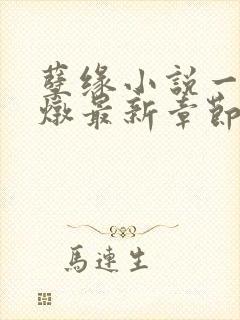 孽缘小說一
燉最新章節
馬連生